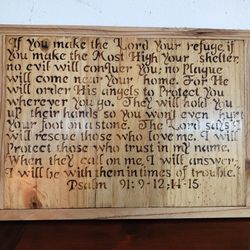 If you make the Lord your refuge, if
you make the Most High your shelter,
no evil will conquer you; no Plague
will come near your home. For He
will order His angels to Protect you
wherever you go. They will hold you
up their hands so you won't even hurt
your foot on a stone. The Lord says "I
will rescue those who love me. I will
Protect those who trust in my name.
When they call on me, I will answer;
I will be with them in times of trouble.
Psalm 91:9-12; 14-15